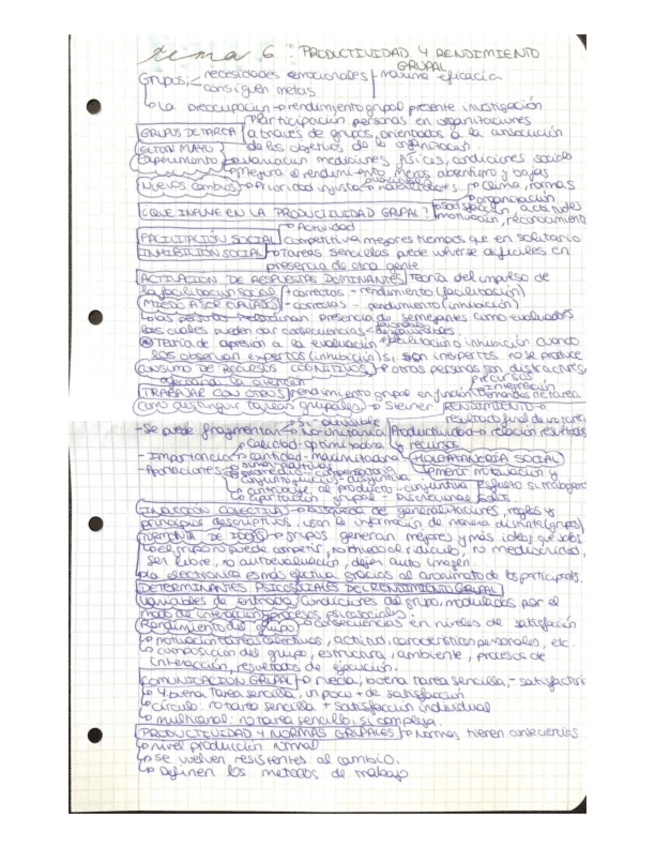 tema 6: PRODUCTIVIDAD Y RENDIMIENTO
GRUPAL
Grupos necesidades emocionales máxima eficacia
consiguen metas
La preocupacion rendimiento grupal presente investigación
Participacion personas en organizaciones
GRUPOS DE TAREA a través de grupos, orientados a la consecución
ELTON MAYO de los objetivos de la organización.
Experimento evaluacion mediciones físicas, condiciones sociales
Mejora el rendimiento, menos absentismo y bajas
Nuevos cambios Prioridad clima, normas
organización
¿QUE INFLUYE EN LA PRODUCTIVIDAD GRUPAL? satisfacción, actitudes
motivación, reconocimiento
Actividad
FACILITACIÓN SOCIAL competitiva mejores tiempos que en solitario
INHIBICIÓN SOCIAL tareas sencillas puede volverse dificiles en
presencia de otra gente
ACTIVACION DE RESPUESTAS DOMINANTES Teoría del impulso de
la facilitacion social + correctas - rendimiento (facilitación)
MIEDO A SER EVALUADOS - correctas - rendimiento (inhibición)
presencia de semejantes como evaluadores
los cuales pueden dar consecuencias
Teoría de apresión a la evaluación facilitacion o inhibición cuando
los observan expertos (inhibición) si son inexpertos no se produce
CONSUMO DE RECURSOS COGNITIVOS otras personas son distractores
afectando la atencion
TRABAJAR CON OTROS rendimiento grupal en función demandas de tarea
recursos
integración
Como distinguir tareas grupales Steiner RENDIMIENTO
resultado final de una tarea
- Se puede fragmentar Si divisible
No unitaria Productividad relación resultados
recursos
- Importancia Calidad - optimizadora
cantidad - maximizadora HOLGAZANERIA SOCIAL
- Aportaciones sumar - aditivas
promedio - compensatoria menor motivacion y
esfuerzo si trabajan
contribuye al producto - conjuntiva
aportación grupal - discrecionales solos
INDUCCIÓN COLECTIVA busqueda de generalizaciones, reglas y
principios descriptivos, usan la información de manera distinta (grupos)
TORMENTA DE IDEAS grupos generan mejores y más ideas que solos
el grupo no puede competir, no miedo al ridículo, no mediocridad,
ser libre, no autoevaluación, dejar auto imagen.
La electronica es más efectiva gracias al anonimato de los participants.
DETERMINANTES PSICOSOCIALES DEL RENDIMIENTO GRUPAL
Variables de entrada Condiciones del grupo, modulados por el
procesos psicosociales.
Rendimiento del grupo consecuencias en niveles de satisfacción
motivación, características personales, etc.
composición del grupo, estructura, ambiente, procesos de
interacción, resultados de ejecución.
COMUNICACION GRUPAL rueda, buena tarea sencilla, - satisfactorio
Y buena tarea sencilla, un poco + de satisfaccion
círculo: no tarea sencilla + satisfacción individual
multicanal: no tarea sencilla, si compleja.
PRODUCTIVIDAD Y NORMAS GRUPALES Normas tienen consecuencias
nivel producción normal
se vuelven resistentes al cambio.
Definen los metodos de trabajo